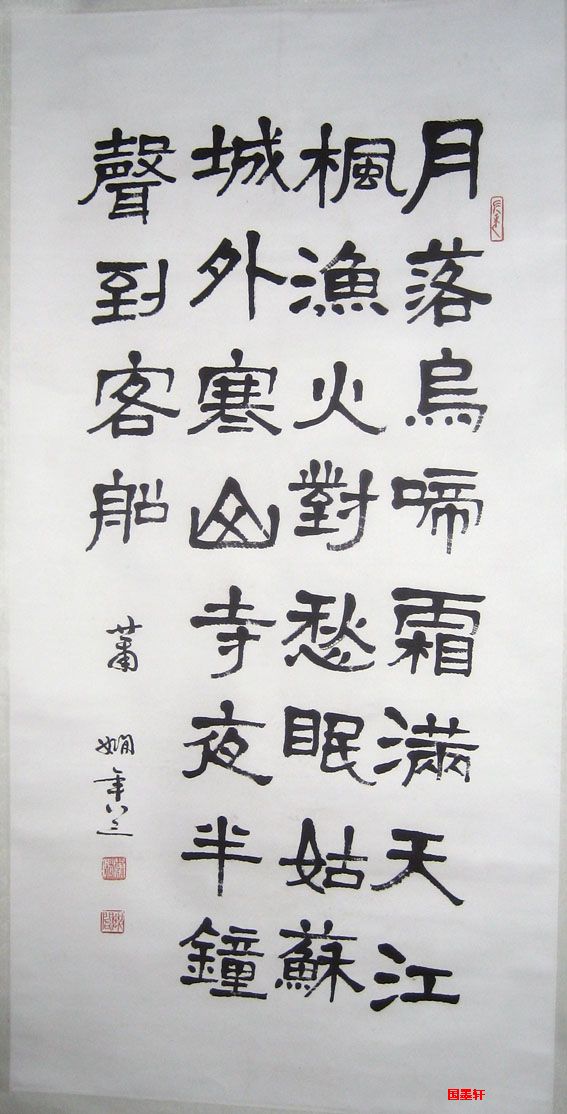 月落烏啼霜滿天江
楓漁火對愁眠姑蘇
城外寒山寺夜半鐘
聲到客船
蕭嫻年八三
国墨轩